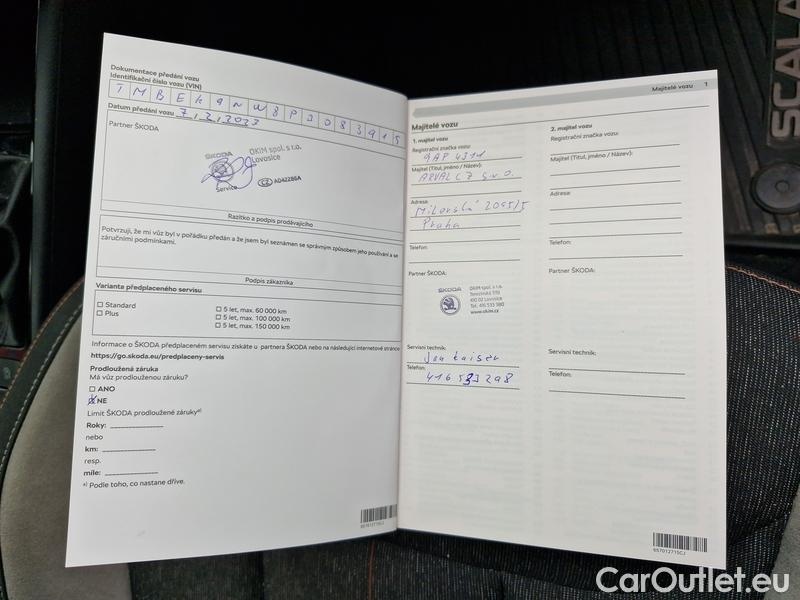 Dokumentace předání vozu
Identifikační číslo vozu (VIN)
T M B E K 9 N W 8 P 3 0 8 3 9 1 5
Datum předání vozu 7.2.2023
Partner ŠKODA
ŠKODA
Service
OKIM spol. s r.o.
Lovosice
CZ AD42286A
Razítko a podpis prodávajícího
Potvrzuji, že mi vůz byl v pořádku předán a že jsem byl seznámen se správným způsobem jeho používání a se
záručními podmínkami.
Podpis zákazníka
Varianta předplaceného servisu
Standard
Plus
5 let, max. 60 000 km
5 let, max. 100 000 km
5 let, max. 150 000 km
Informace o ŠKODA předplaceném servisu získáte u partnera ŠKODA nebo na následující internetové stránce
https://go.skoda.eu/predplaceny-servis
Prodloužená záruka
Má vůz prodlouženou záruku?
ANO
NE
Limit ŠKODA prodloužené záruky a)
Roky:
nebo
km:
resp.
míle:
a) Podle toho, co nastane dříve.
657012715CJ
Majitelé vozu 1
Majitelé vozu
1. majitel vozu
Registrační značka vozu:
9AP 4311
Majitel (Titul, jméno / Název):
ARVAL CZ s.r.o.
Adresa:
Milevská 2095/5
Praha
Telefon:
Partner ŠKODA:
ŠKODA
OKIM spol. s r.o.
410 02 Lovosice
Tel. 416 533 980
www.okim.cz
Servisní technik:
Jan Kaiser
Telefon:
416 533 298
2. majitel vozu
Registrační značka vozu:
Majitel (Titul, jméno / Název):
Adresa:
Telefon:
Partner ŠKODA:
Servisní technik:
Telefon:
657012715CJ
SCALA
CarOutlet.eu